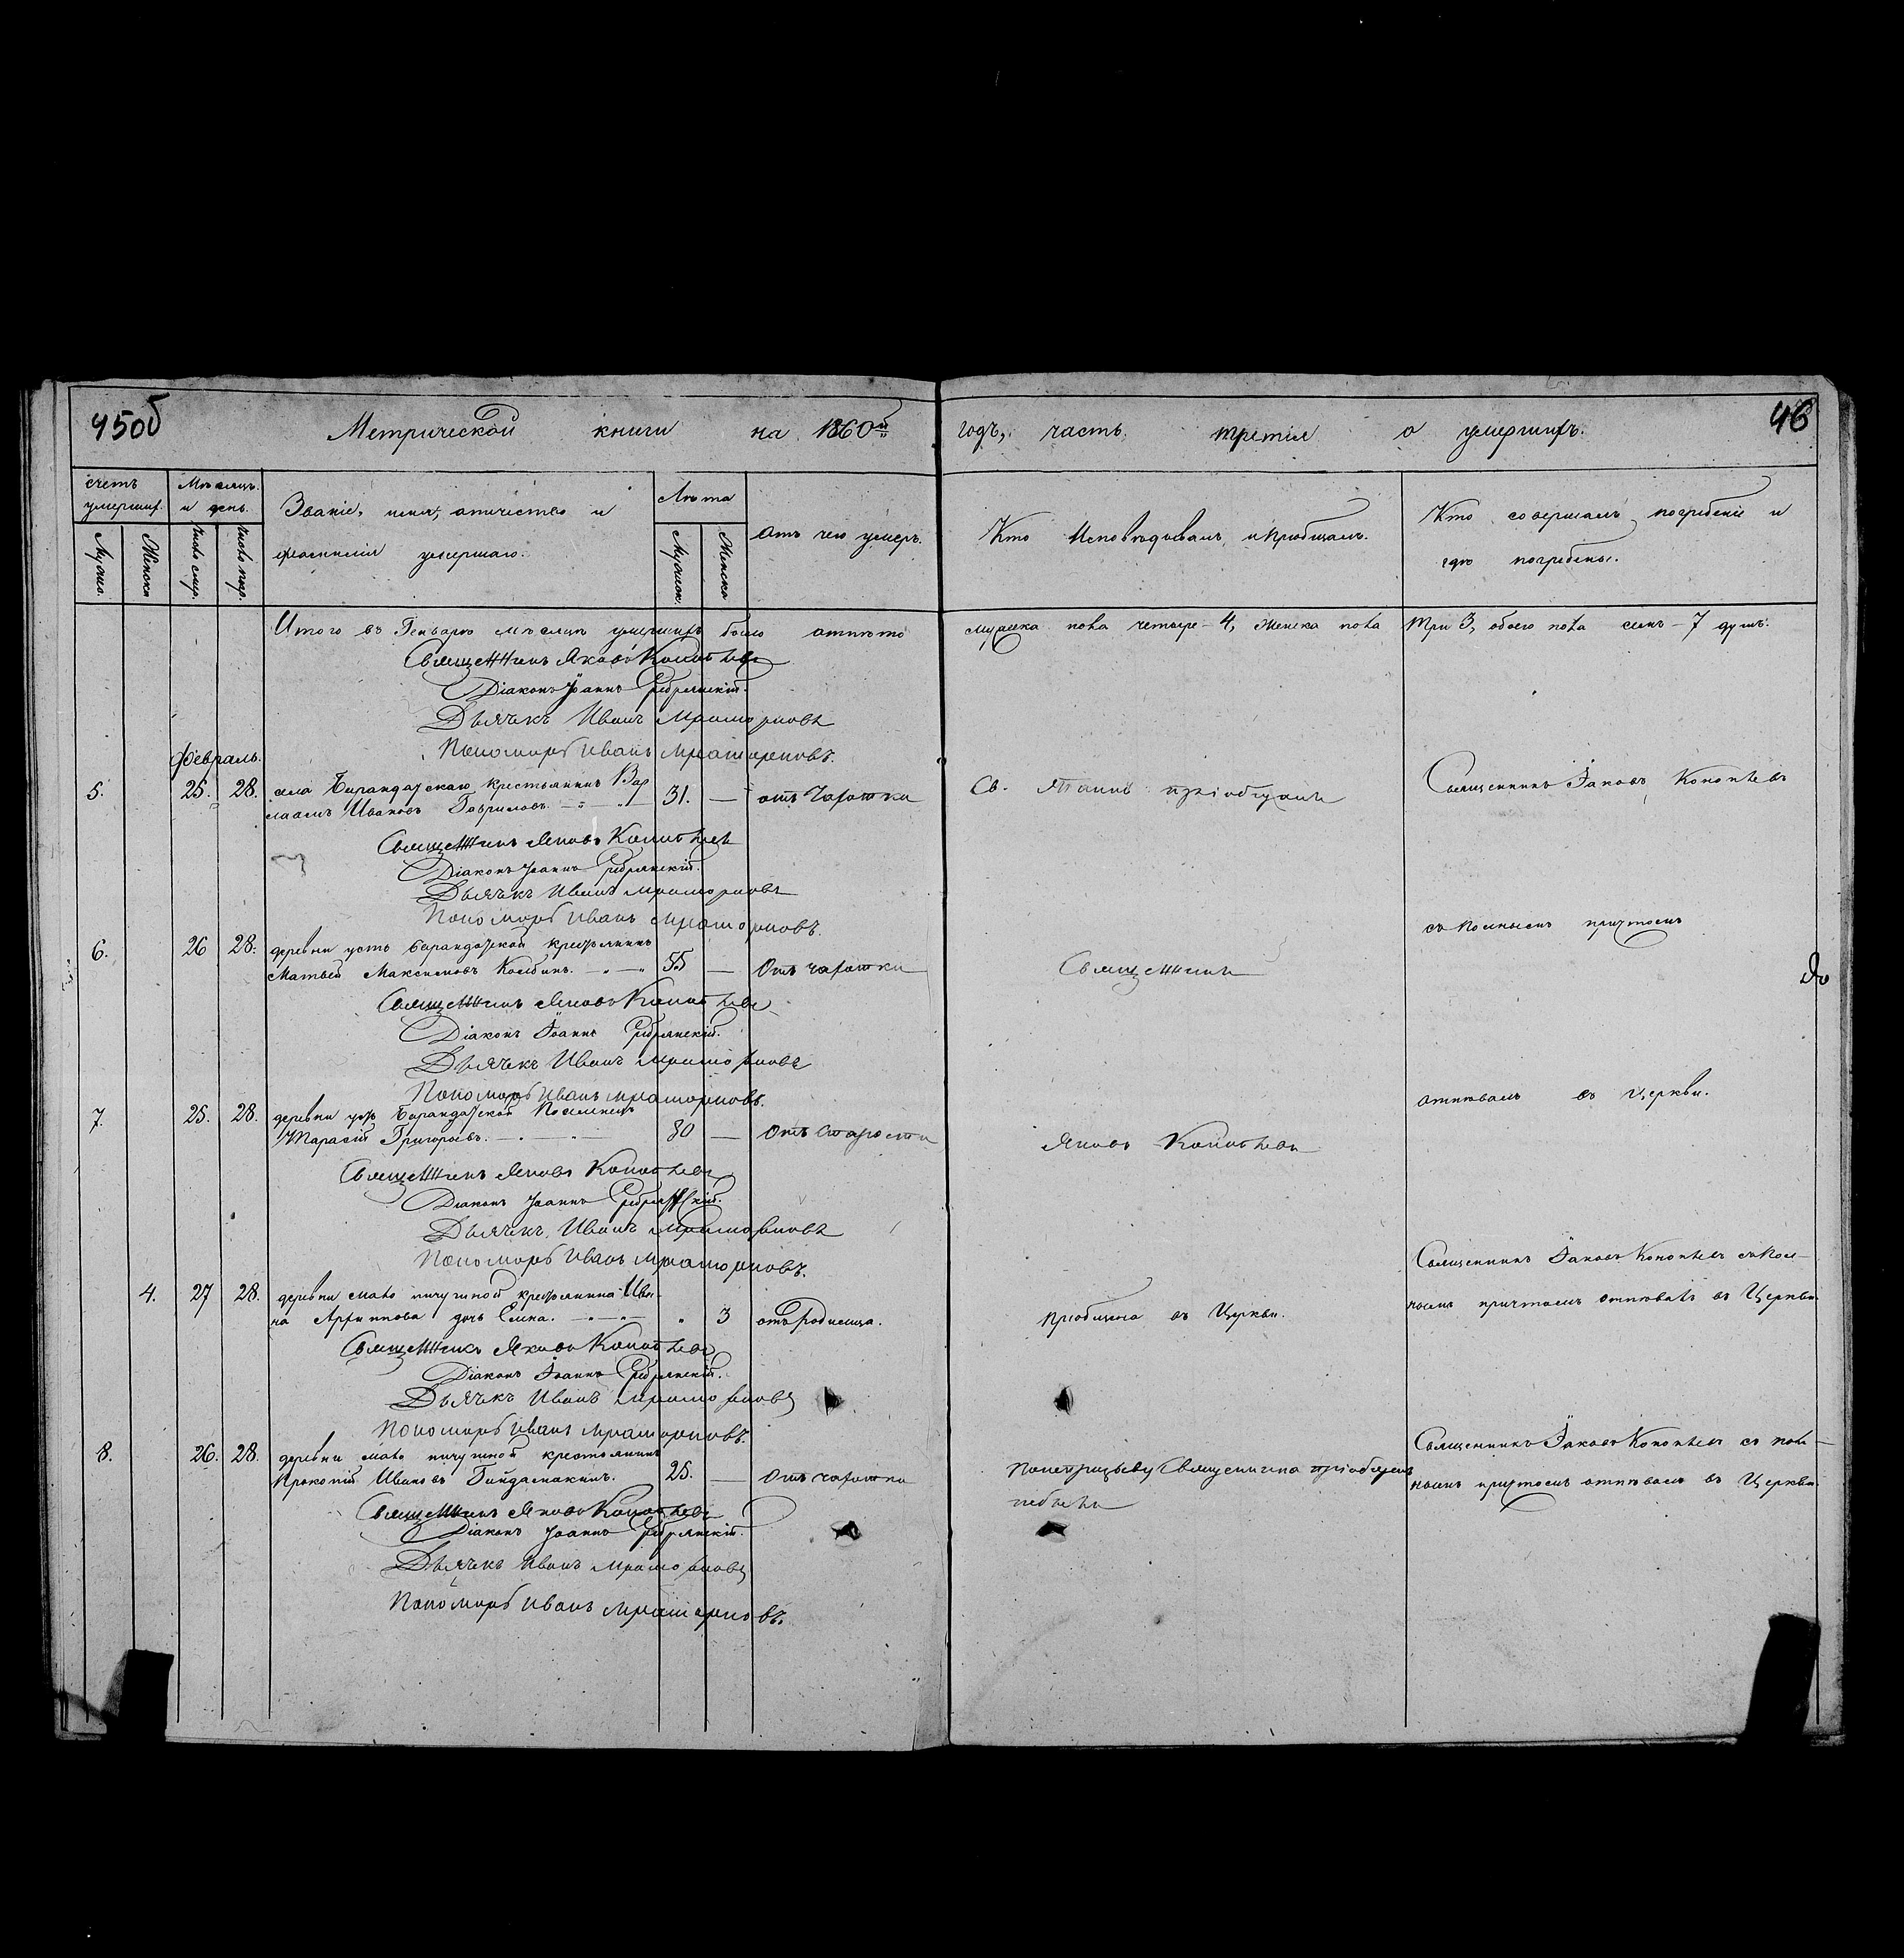 45об
Метрической книги на 1860й годъ, часть третія о умершихъ.
46
счетъ умерших.
Мѣсяцъ и день.
Званіе, имя, отчество и
фамилія умершаго.
Лѣта
Отъ чего умеръ.
Кто Исповѣдывалъ и пріобщалъ.
Кто совершалъ погребеніе и
гдѣ погребены.
Мужска.
Женска
Число смер.
Число погр.
Мужск.
Женска
Итого въ Генварѣ мѣсяцѣ умершихъ было отпѣто мужеска пола четыре - 4, Женска пола Три 3, обоего пола семь - 7 душъ.
Священникъ Яковъ Копотевъ
Діаконъ Іоаннъ Серебрянскій.
Дьячекъ Иванъ Мраморновъ
Пономарь Иванъ Мраморновъ.
Февраль.
5. 25. 28. села крестьянинъ Вар
лаамъ Ивановъ Гавриловъ. 31. — отъ Чахотки
Св. Таинъ пріобщалъ
Священникъ Іаковъ Копотевъ
Священникъ Яковъ Копотевъ
Діаконъ Іоаннъ Серебрянскій.
Дьячекъ Иванъ Мраморновъ
Пономарь Иванъ Мраморновъ.
съ полнымъ причтомъ
6. 26 28. деревни усть крестьянинъ
Матвей Максимовъ 55 — Отъ чахотки
Священникъ
До
Священникъ Яковъ Копотевъ
Діаконъ Іоаннъ Серебрянскій.
Дьячекъ Иванъ Мраморновъ
Пономарь Иванъ Мраморновъ.
отпѣвалъ въ Церкви.
7. 25. 28. деревни усть Поселенецъ
Тарасій Григорьевъ. 80 — Отъ Старости
Яковъ Копотевъ
Священникъ Яковъ Копотевъ
Діаконъ Іоаннъ Серебрянскій.
Дьячекъ Иванъ Мраморновъ
Пономарь Иванъ Мраморновъ.
Священникъ Іаковъ Копотевъ съ пол-
4. 27 28. деревни мало пичугиной крестьянина Ива-
на Архипова дочь Елена. „ 3 отъ Родимца.
пріобщена въ Церкви.
нымъ причтомъ отпѣвалъ въ Церкви.
Священникъ Яковъ Копотевъ
Діаконъ Іоаннъ Серебрянскій.
Дьячекъ Иванъ Мраморновъ
Пономарь Иванъ Мраморновъ.
Священникъ Іаковъ Копотевъ съ пол-
8. 26. 28. деревни мало пичугиной крестьянинъ
Прокопій Ивановъ Гайдамакинъ. 25. — Отъ чахотки
Священника пріобщенъ
небылъ
нымъ причтомъ отпѣвалъ въ Церкви.
Священникъ Яковъ Копотевъ
Діаконъ Іоаннъ Серебрянскій.
Дьячекъ Иванъ Мраморновъ
Пономарь Иванъ Мраморновъ.